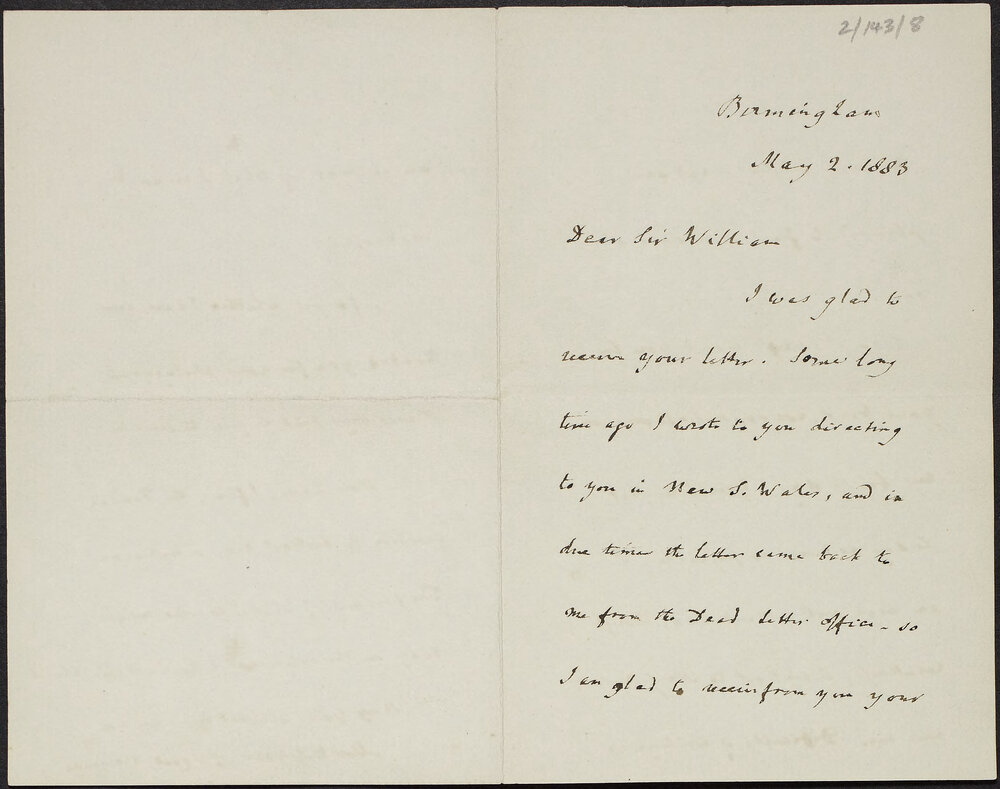 2/143/8
Birmingham
May 2. 1883
Dear Sir William
I was glad to
receive your letter. Some long
time ago I wrote to you directing
to you in New S. Wales, and in
due time the letter came back to
me from the Dead Letter office - so
I am glad to receive from you your